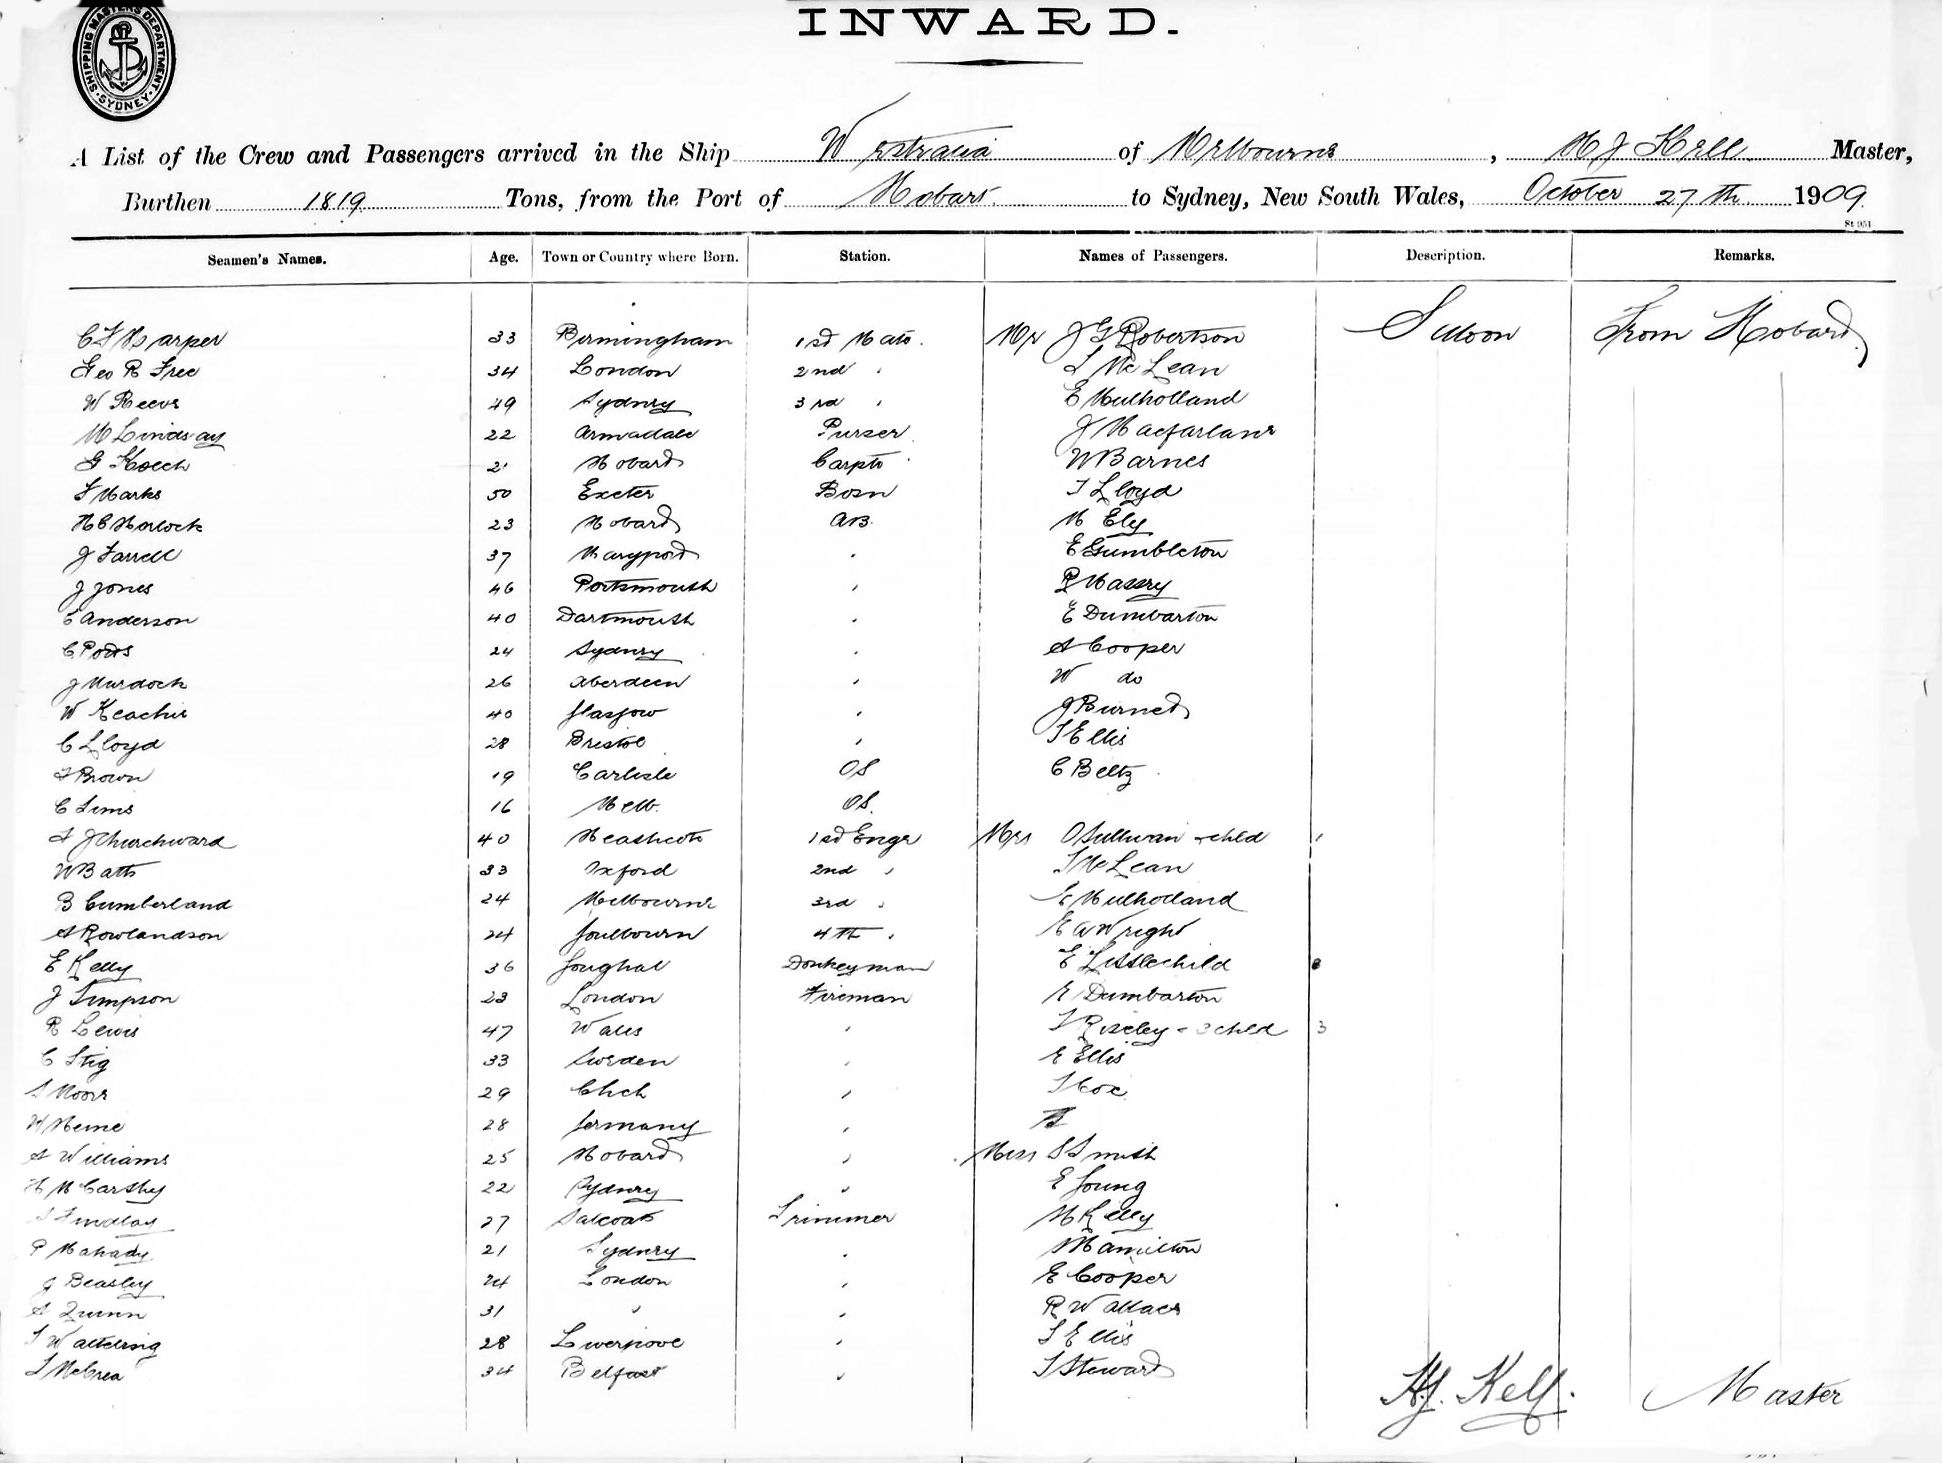 SHIPPING MASTERS DEPARTMENT SYDNEY
INWARD.
A List of the Crew and Passengers arrived in the Ship Westralia of Melbourne, H J Kell Master,
Burthen 1819 Tons, from the Port of Hobart to Sydney, New South Wales, October 27th 1909
St 951
Seamen's Names. Age. Town or Country where Born. Station. Names of Passengers. Description. Remarks.
C F Harper 33 Birmingham 1st Mate. Mr J G Robertson Saloon From Hobart
Geo R Free 34 London 2nd " L McLean
W Reeve 49 Sydney 3rd " E Mulholland
M Lindsay 22 Armadale Purser J Macfarlane
G Koech 2 Hobart Carptr W Barnes
F Marks 50 Exeter Bosn T Lloyd
H C Horlock 23 Hobart AB. M Ely
J Farrell 37 Maryport " E Gumbleton
J Jones 46 Portsmouth " R Massey
C Anderson 40 Dartmouth " E Dumbarton
C Potts 24 Sydney " A Cooper
J Murdock 26 Aberdeen " W do
W Keachie 40 Glasgow " J Burnet
C Lloyd 28 Bristol " T Ellis
F Brown 19 Carlisle OS C Beltz
C Sims 16 Melb. OS.
A J Churchward 40 Heathcote 1st Engr Mrs OSullivan + child 1
W Batt 33 Oxford 2nd " T McLean
B Cumberland 24 Melbourne 3rd " E Mulholland
A Rowlandson 24 Goulbourn 4th " E A Wright
E Kelly 36 Youghal Donkeyman E Littlechild
J Simpson 23 London Fireman E Dumbarton
R Lewis 47 Wales " T Riseley - 3 child 3
C Stig 33 Sweden " E Ellis
S Moore 29 Chch " T Cox
H Heine 28 Germany "
A Williams 25 Hobart " Miss S Smith
H McCarthy 22 Sydney " E Young
S Findlay 27 Salcoats Trimmer M Kelly
P Mahady 21 Sydney " Hamilton
J Beasley 24 London " E Cooper
A Quinn 31 " " R Wallace
T Wattering 28 Liverpool " T Ellis
T McCrea 34 Belfast " T Steward
H J. Kell. Master